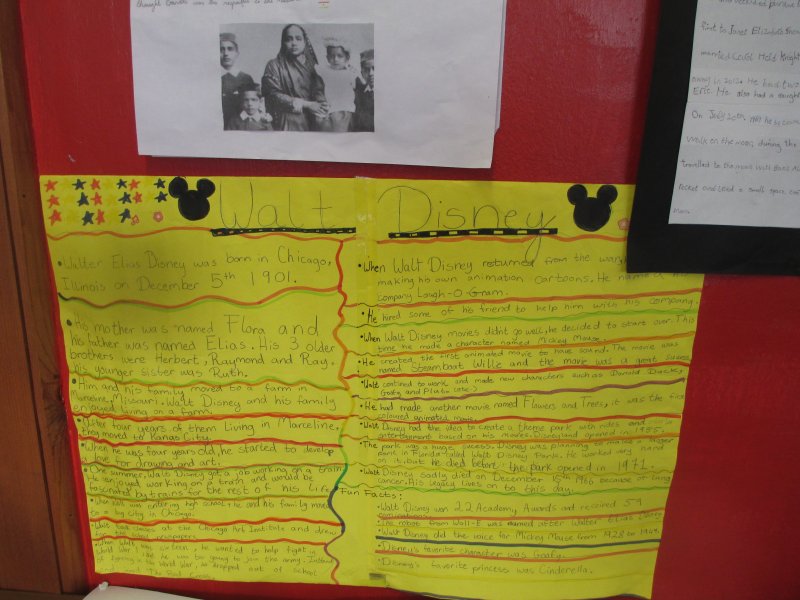 thought Gandhi was the
Walt Disney
• Walter Elias Disney was born in Chicago,
Illinois on December 5th 1901.
• His mother was named Flora and
his father was named Elias. His 3 older
brothers were Herbert, Raymond and Ray.
his younger sister was Ruth.
• Him and his family moved to a farm in
Marceline, Missouri. Walt Disney and his family
enjoyed living on a farm.
• After four years of them Living in Marceline,
they moved to Kansas City.
• When he was four years old, he started to develop
a love for drawing and art.
• One summer, Walt Disney got a job working on a train
He enjoyed working on a train and would be
fascinated by trains for the rest of his life
• When Walt was entering high school, he and his family moved
to a big city in Chicago.
• Walt took classes at the Chicago Art Institute and drew
for the school newspapers.
• When Walt was sixteen, he wanted to help fight
World War I
of fighting in the World War, he dropped out of school
and The Red Cross
• When Walt Disney returned from the war, he
making his own animation cartoons. He named his
company Laugh-O Gram.
• He hired some of his friend to help him with his company.
• When Walt Disney movies didn't go well, he decided to start over. This
time he made a character named Mickey Mouse.
• He created the first animated movie to have sound. The movie was
named Steamboat Willie and the movie was a great success
• Walt contined to work and made new characters such as Donald Duck,
Goofy and Pluto
• He had made another movie named Flowers and Trees, it was the first
coloured animated movie.
• Walt Disney had the idea to create a theme park with rides and
entertainment based on his movies. Disneyland opened in 1955.
• The park was a huge success. Disney was going to create a bigger
park in Florida called Walt Disney Park. He worked very hard
on it, but he died before the park opened in 1971.
• Walt Disney sadly died on December 15th 1966 because of lung
cancer. His legacy lives on to this day.
Fun Facts:
• Walt Disney won 22 Academy Awards and received 59
nominations.
• The robot from Wall-E was named after Walter Elias Disney
• Walt Disney did the voice for Mickey Mouse from 1928 to 1947.
• Disney's favorite character was Goofy.
• Disney's favorite princess was Cinderella.
first to Janet Elizabeth
married Carol Held Knight
away in 2012. He had two
Eric. He also had a daught
On July 20th, 1969 he became
walk on the moon, during the
travelled to the moon with
rocket and used a small space